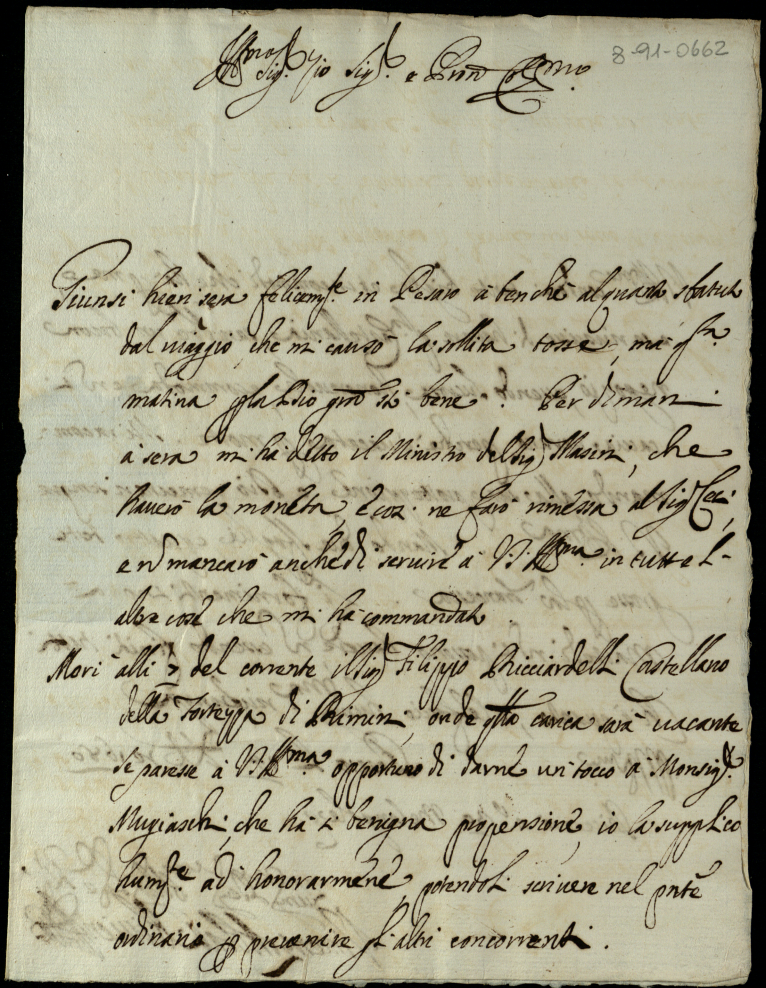 8-91-0662
Ill.mo Sig.r Sig.r e Pron Col.mo
Giunsi hieri sera felicem.te in Pesaro à benche alquanto sbatuto
dal viaggio, che mi causò la sollita tosse, mà q.sta
matina Dio grà stò bene. Per dimani
à sera mi hà detto il Ministro del Sig.r Masini, che
haverò la moneta, e così ne farò rimessa al Sig.r
e nō mancarò anche di servire à V.S. Ill.ma in tutte l'
altre cose che mi hà commandato.
Morì alli 7 del corrente il Sig.r Filippo Ricciardelli Castellano
della Fortezza di Rimini, onde q̄sta carica sarà vacante
se paresse à V.S. Ill.ma opportuno di darne un tocco à Monsig.r
che hà sì benigna propensione, io la supplico
hum.te ad honorarmene, potendoli scrivere nel pn̄te
ordinario p prevenire gl'altri concorrenti.